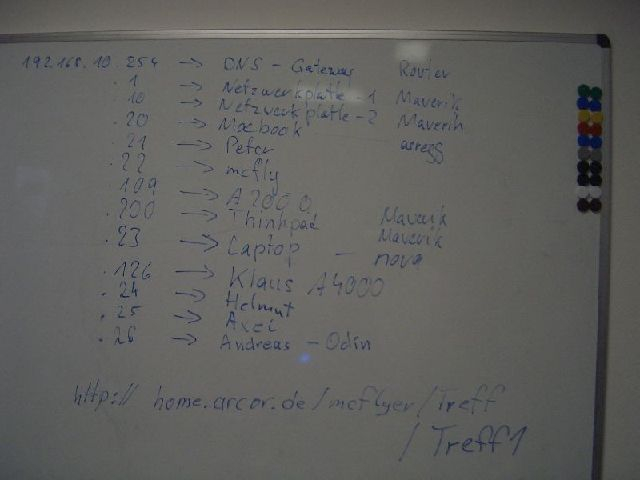 192.168.10.254 → DNS - Gateway Router
.1 → Netzwerkplatte - 1 Maverik
.10 → Netzwerkplatte - 2 Maverik
.20 → Macbook
.21 → Peter
.22 → mcfly
.109 → A2000 Maverik
.200 → Thinkpad Maverik
.23 → Laptop - nova
.126 → Klaus A4000
.24 → Helmut
.25 → Axel
.26 → Andreas - Odin
http:// home.arcor.de/mcflyer/Treff
/Treff1